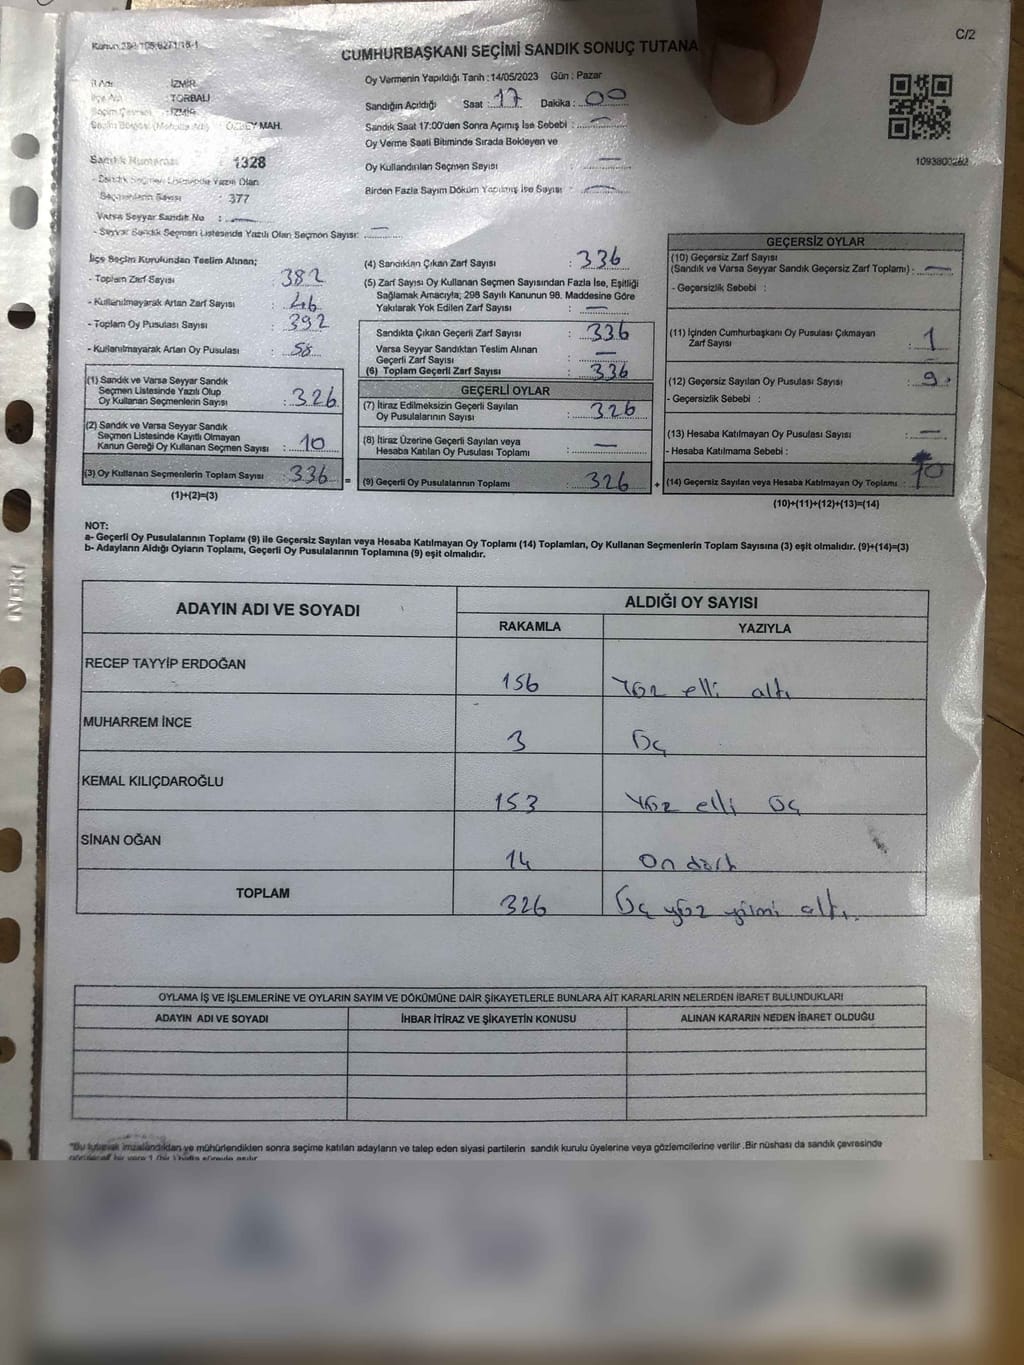 C/2
CUMHURBAŞKANI SEÇİMİ SANDIK SONUÇ TUTANA
Oy Vermenin Yapıldığı Tarih :14/05/2023 Gün : Pazar
Sandığın Açıldığı Saat : 17 Dakika : 00
Sandık Saat 17:00'den Sonra Açımış İse Sebebi : —
Oy Verme Saati Bitiminde Sırada Bekleyen ve
Oy Kullandırılan Seçmen Sayısı —
Birden Fazla Sayım Döküm Yapılmış İse Sayısı : —
1093800282
İZMİR
: TORBALI
: İZMİR
MAH.
Sandık Numarası : 1328
- Sandık Seçmen Listesinde Yazılı Olan
Seçmenlerin Sayısı : 377
Varsa Seyyar Sandık No : —
- Seyyar Sandık Seçmen Listesinde Yazılı Olan Seçmen Sayısı: —
İlçe Seçim Kurulundan Teslim Alınan;
- Toplam Zarf Sayısı : 382
- Kullanılmayarak Artan Zarf Sayısı : 46
- Toplam Oy Pusulası Sayısı : 392
- Kullanılmayarak Artan Oy Pusulası : 58
(1) Sandık ve Varsa Seyyar Sandık
Seçmen Listesinde Yazılı Olup
Oy Kullanan Seçmenlerin Sayısı : 326
(2) Sandık ve Varsa Seyyar Sandık
Seçmen Listesinde Kayıtlı Olmayan
Kanun Gereği Oy Kullanan Seçmen Sayısı : 10
(3) Oy Kullanan Seçmenlerin Toplam Sayısı : 336 =
(1)+(2)=(3)
(4) Sandıktan Çıkan Zarf Sayısı : 336
(5) Zarf Sayısı Oy Kullanan Seçmen Sayısından Fazla İse, Eşitliği
Sağlamak Amacıyla; 298 Sayılı Kanunun 98. Maddesine Göre
Yakılarak Yok Edilen Zarf Sayısı : —
Sandıkta Çıkan Geçerli Zarf Sayısı : 336
Varsa Seyyar Sandıktan Teslim Alınan
Geçerli Zarf Sayısı : —
(6) Toplam Geçerli Zarf Sayısı : 336
GEÇERLİ OYLAR
(7) İtiraz Edilmeksizin Geçerli Sayılan
Oy Pusulalarının Sayısı : 326
(8) İtiraz Üzerine Geçerli Sayılan veya
Hesaba Katılan Oy Pusulası Toplamı : —
(9) Geçerli Oy Pusulalarının Toplamı : 326 +
GEÇERSİZ OYLAR
(10) Geçersiz Zarf Sayısı
(Sandık ve Varsa Seyyar Sandık Geçersiz Zarf Toplamı) : —
- Geçersizlik Sebebi :
(11) İçinden Cumhurbaşkanı Oy Pusulası Çıkmayan
Zarf Sayısı : 1
(12) Geçersiz Sayılan Oy Pusulası Sayısı : 9
- Geçersizlik Sebebi :
(13) Hesaba Katılmayan Oy Pusulası Sayısı : —
- Hesaba Katılmama Sebebi :
(14) Geçersiz Sayılan veya Hesaba Katılmayan Oy Toplamı : 10
(10)+(11)+(12)+(13)=(14)
NOT:
a- Geçerli Oy Pusulalarının Toplamı (9) ile Geçersiz Sayılan veya Hesaba Katılmayan Oy Toplamı (14) Toplamları, Oy Kullanan Seçmenlerin Toplam Sayısına (3) eşit olmalıdır. (9)+(14)=(3)
b- Adayların Aldığı Oyların Toplamı, Geçerli Oy Pusulalarının Toplamına (9) eşit olmalıdır.
ADAYIN ADI VE SOYADI ALDIĞI OY SAYISI
RAKAMLA YAZIYLA
RECEP TAYYİP ERDOĞAN 156 Yüz elli altı
MUHARREM İNCE 3 Üç
KEMAL KILIÇDAROĞLU 153 Yüz elli üç
SİNAN OĞAN 14 On dört
TOPLAM 326 Üç yüz yirmi altı.
OYLAMA İŞ VE İŞLEMLERİNE VE OYLARIN SAYIM VE DÖKÜMÜNE DAİR ŞİKAYETLERLE BUNLARA AİT KARARLARIN NELERDEN İBARET BULUNDUKLARI
ADAYIN ADI VE SOYADI İHBAR İTİRAZ VE ŞİKAYETİN KONUSU ALINAN KARARIN NEDEN İBARET OLDUĞU
"Bu tutanak imzalandıktan ve mühürlendikten sonra seçime katılan adayların ve talep eden siyasi partilerin sandık kurulu üyelerine veya gözlemcilerine verilir .Bir nüshası da sandık çevresinde